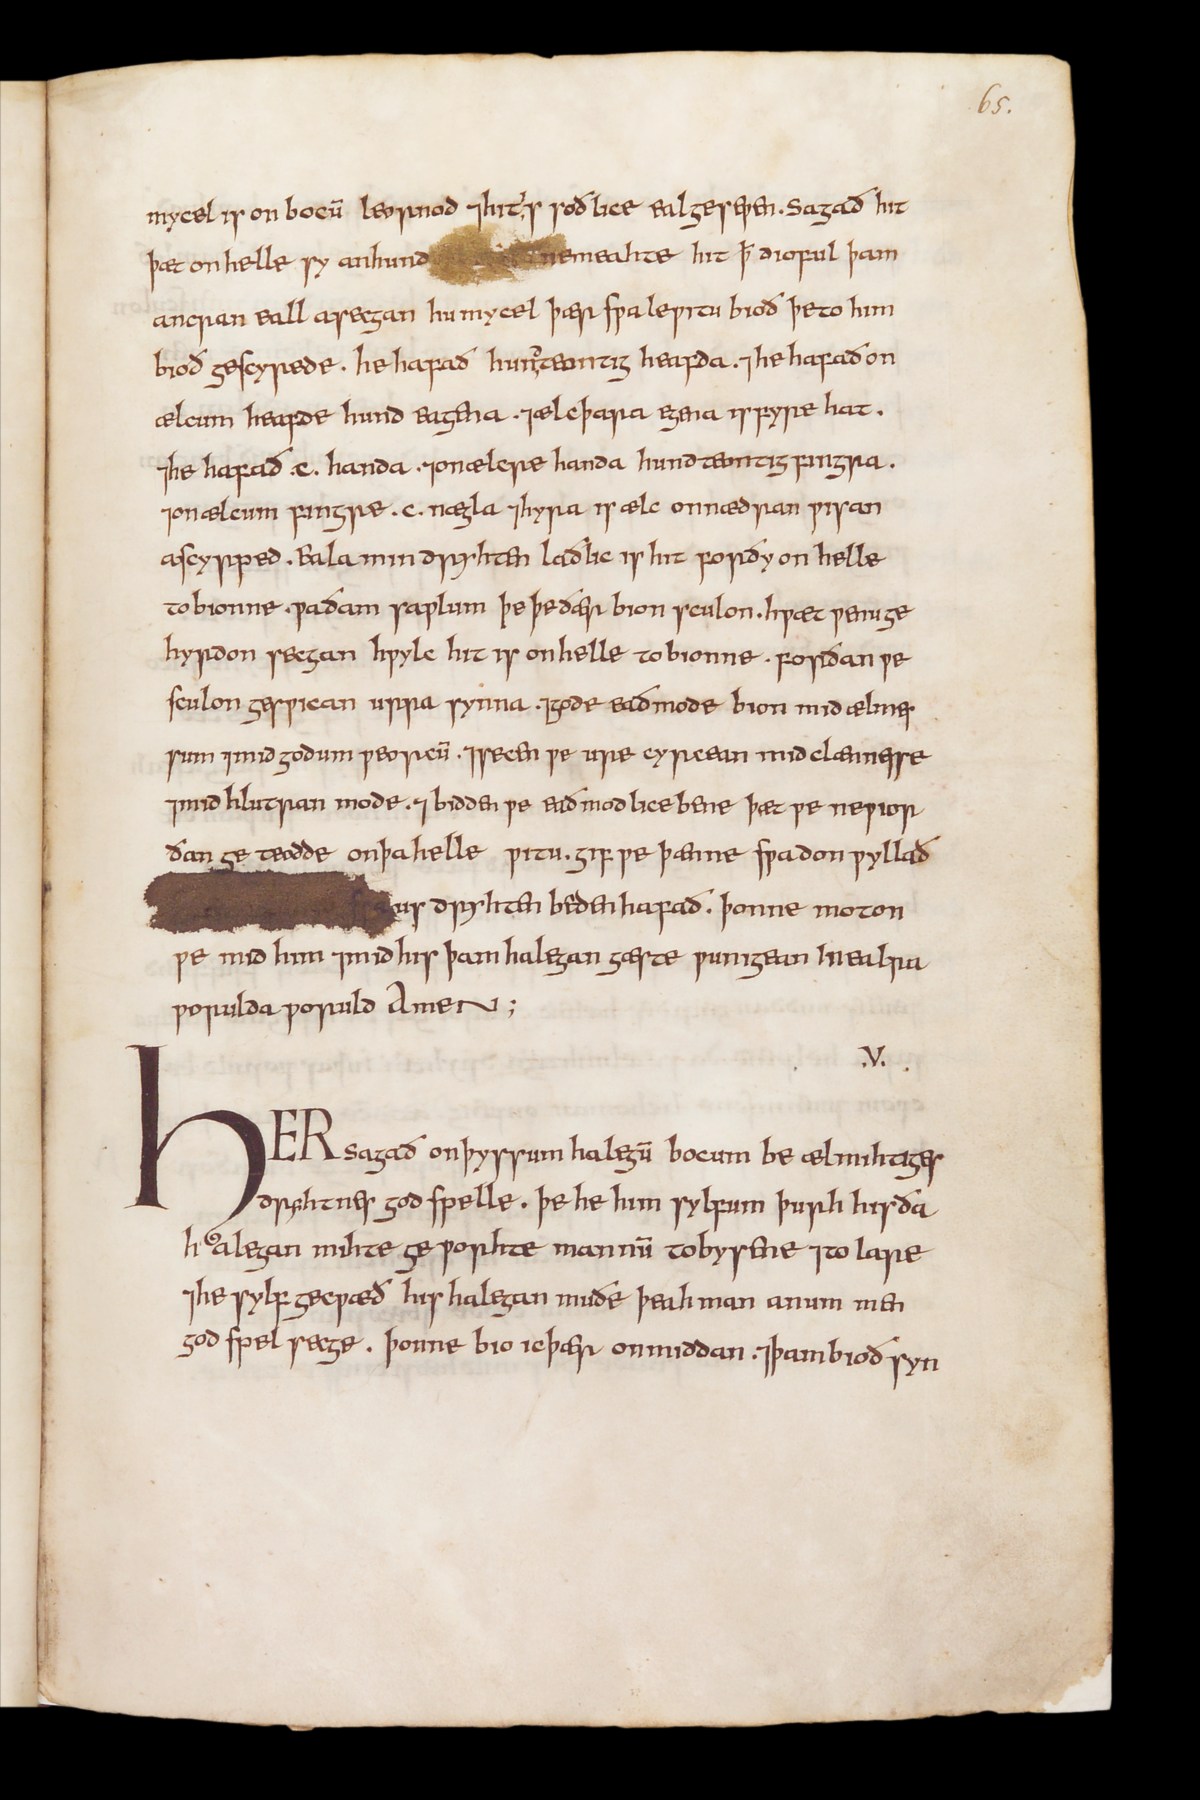 65.
mycel is on bocū leornod ⁊hit is soðlice eal gesewen. Sagað hit
þæt on helle sy an hund nemeahte hit þ̄ dioful þam
ancran eall asecgan hu mycel þær swa lewitu bioð þe to him
bioð gescyrede. he hafað hundteontig heafda. ⁊he hafað on
ælcum heafde hund eagena. ⁊ælc þara egena is fyre hat.
⁊he hafað .c. handa. ⁊on ælcre handa hundteontig fingra.
⁊on ælcum fingre .c. nægla ⁊hyra is ælc on nædran wisan
ascyrped. Eala min dryhten laðlic is hit forðy on helle
to bionne. wa ðam sawlum þe þe ðær bion sculon. hwæt we nu ge
hyrdon secgan hwylc hit is on helle to bionne. forðan we
sculon geswican ussa synna. ⁊gode eaðmode bion mid ælmes
sum ⁊mid godum weorcū. ⁊secen we ure cyricean mid clænnesse
⁊mid hlutran mode. ⁊ bidden we eaðmodlice bene þæt we ne wior
ðan ge teodde on þa helle witu. gif we þænne swa don wyllað
swa us dryhten beden hafað. þonne moton
we mid him ⁊mid his þam halegan gæste wunigean in ealra
worulda woruld AmeN;
.V.
hER sagað on þyssum halegū bocum be ælmihtiges
dryhtnes godspelle. þe he him sylfum þurh his ða
halegan mihte geworhte mannū to bysene ⁊to lare
⁊he sylf gecwæð his halegan muðe þeah man anum men
godspel secge. þonne bio ic þær onmiddan. ⁊þam bioð syn